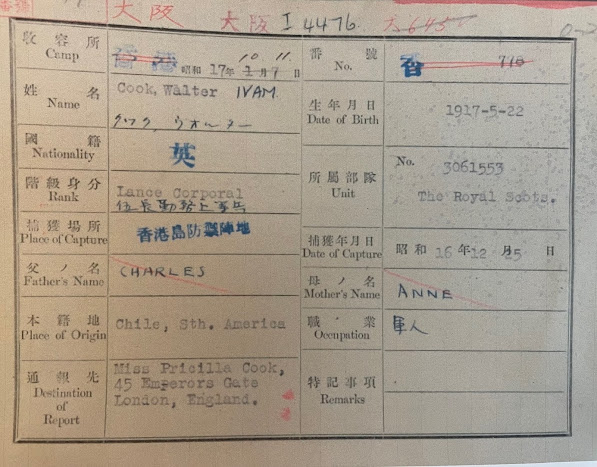 大阪 大阪 I 4476.
收容所 Camp 香港 昭和 17年 1月 日 10 11.
番號 No. 香 710
姓名 Name Cook, Walter IVAM.
クック、ウォルター
生年月日 Date of Birth 1917-5-22
國籍 Nationality 英
階級身分 Rank Lance Corporal
伍長勤務上等兵
所屬部隊 Unit No. 3061553
The Royal Scots.
捕獲場所 Place of Capture 香港島防禦陣地
捕獲年月日 Date of Capture 昭和 16年12月25日
父ノ名 Father's Name CHARLES
母ノ名 Mother's Name ANNE
本籍地 Place of Origin Chile, Sth. America
職業 Occupation 軍人
通報先 Destination of Report Miss Pricilla Cook,
45 Emperors Gate
London, England.
特記事項 Remarks